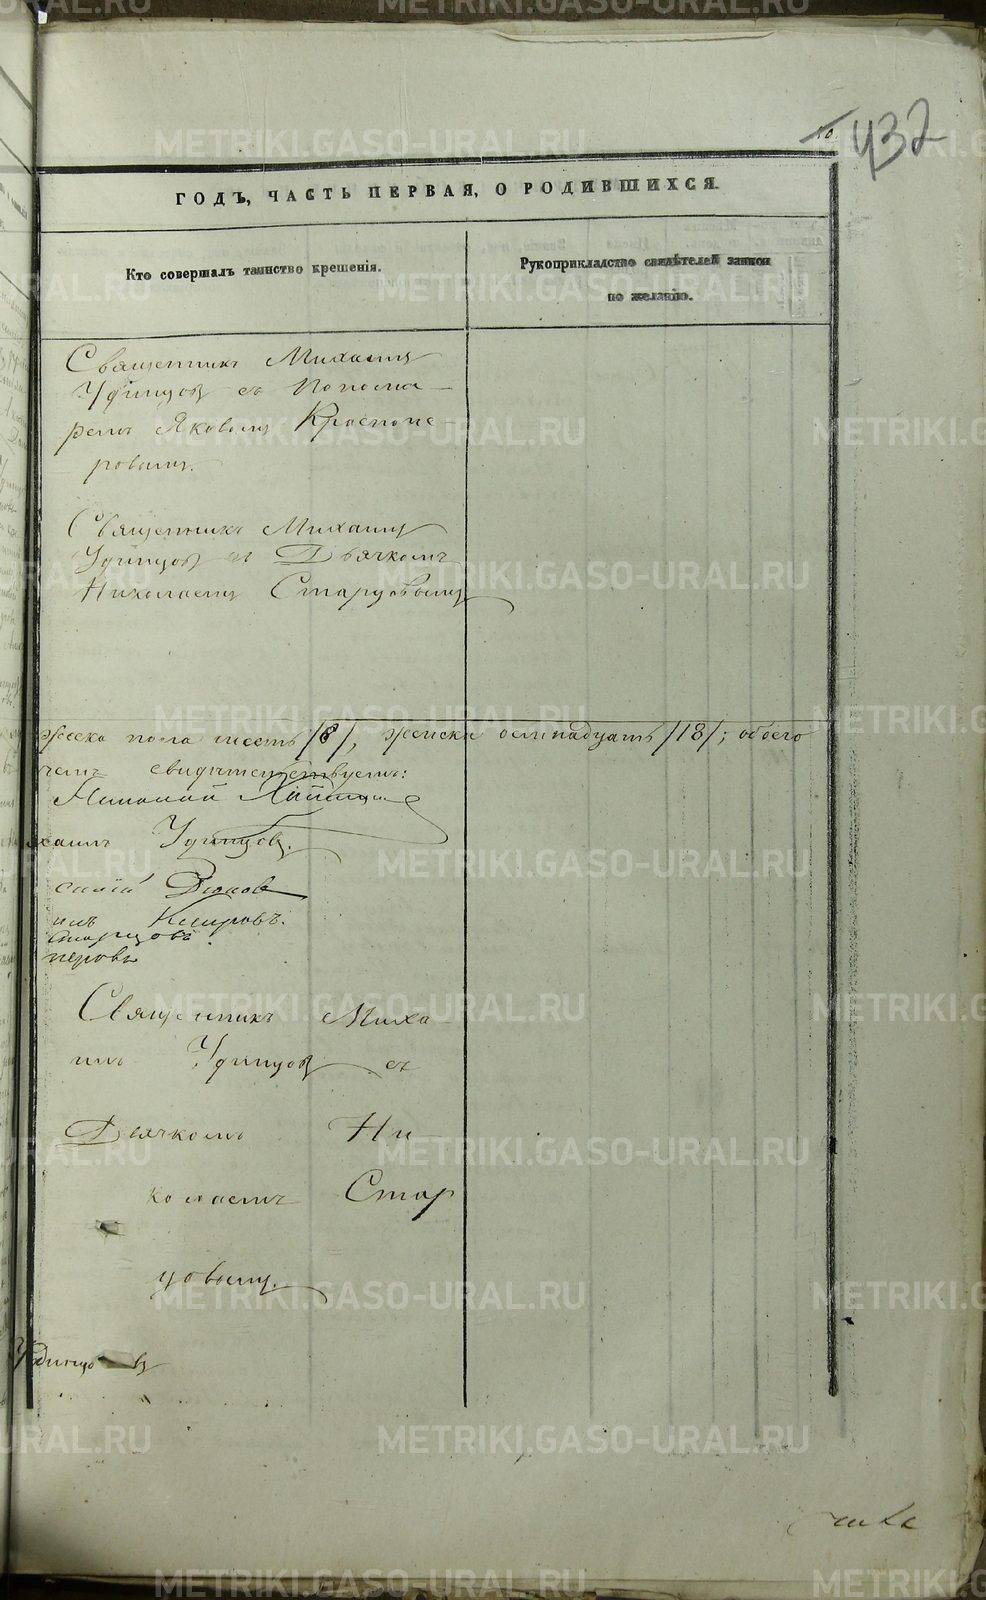 432
ГОДЪ, ЧАСТЬ ПЕРВАЯ, О РОДИВШИХСЯ.
Кто совершалъ таинство крещенія.
Рукоприкладство свидѣтелей записи
по желанію.
Священникъ Михаилъ
Удинцовъ съ Понома-
ремъ Яковомъ Краснопе-
ровымъ.
Священникъ Михаилъ
Удинцовъ съ Дьячкомъ
Николаемъ Старцовымъ
жеска пола шесть /6/, женска осмнадцать /18/; обоего
чемъ свидѣтельствуемъ:
Николай
хаилъ Удинцовъ.
старцовъ
перовъ
Священникъ Миха-
илъ Удинцовъ съ
Дьячкомъ Ни
колаемъ Стар
цовымъ.
Удинцовъ
METRIKI.GASO-URAL.RU